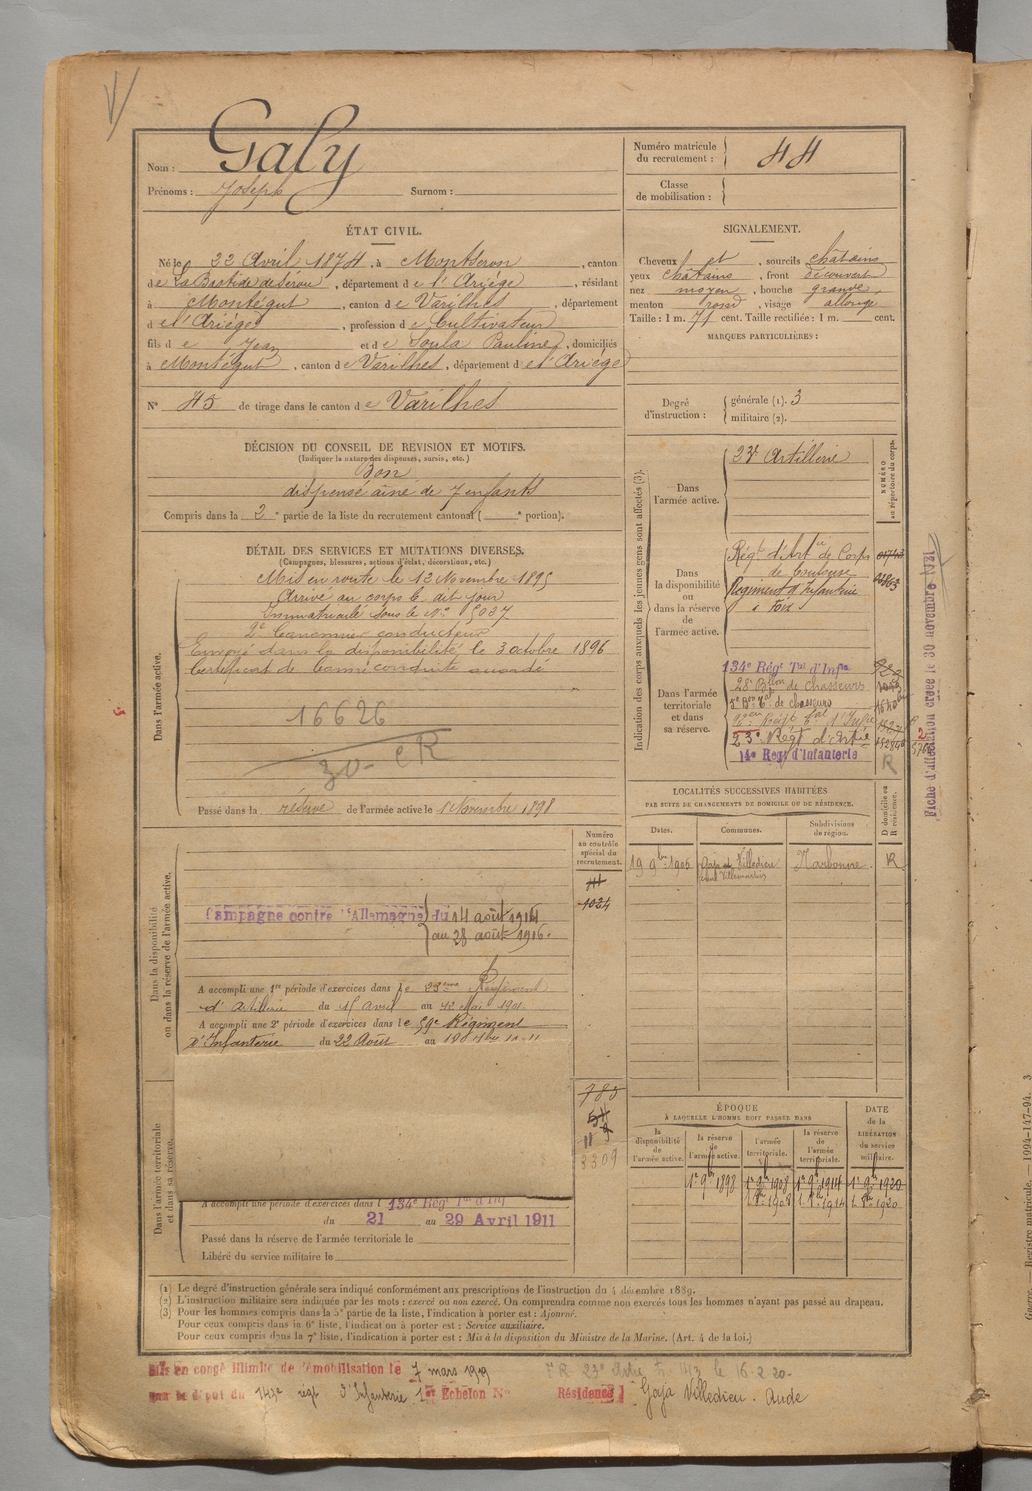 Galy
Nom :
Prénoms : Joseph Surnom :
Numéro matricule du recrutement : 44
Classe de mobilisation :
ÉTAT CIVIL.
Né le 22 Avril 1874, à Montseron, canton
de La Bastide de Sérou, département de l'Ariège, résidant
à Montégut, canton de Varilhes, département
de l'Ariège, profession de Cultivateur
fils de Jean et de Soula Pauline, domiciliés
à Montégut, canton de Varilhes, département de l'Ariège
N° 45 de tirage dans le canton de Varilhes
SIGNALEMENT.
Cheveux et, sourcils châtains
yeux châtains, front découvert
nez moyen, bouche grande
menton rond, visage allongé
Taille : 1 m. 71 cent. Taille rectifiée : 1 m. cent.
MARQUES PARTICULIÈRES :
Degré d'instruction : générale (1). 3
militaire (2).
DÉCISION DU CONSEIL DE REVISION ET MOTIFS.
(Indiquer la nature des dispenses, sursis, etc.)
Bon
dispensé aîné de 7 enfants
Compris dans la 2e partie de la liste du recrutement cantonal ( e portion).
DÉTAIL DES SERVICES ET MUTATIONS DIVERSES.
(Campagnes, blessures, actions d'éclat, décorations, etc.)
Dans l'armée active.
Mis en route le 13 Novembre 1895
Arrivé au corps le dit jour
Immatriculé sous le N° 5037
2e Canonnier conducteur
Envoyé dans la disponibilité le 3 octobre 1896
Certificat de bonne conduite accordé
16626
30- CR
Passé dans la réserve de l'armée active le 1 Novembre 1898
Indication des corps auxquels les jeunes gens sont affectés (3).
NUMÉRO au répertoire du corps.
Dans l'armée active.
23e Artillerie
Dans la disponibilité ou dans la réserve de l'armée active.
Régt d'Artie de Corps
de Toulouse
Régiment d'Infanterie
à Foix
Dans l'armée territoriale et dans sa réserve.
134e Régt Tal d'Infie
28e Bllon de chasseurs
de chasseurs
23e Régt d'Artie
14e Régt d'Infanterie
R
Fiche d'affectation créée le 30 novembre 1921
LOCALITÉS SUCCESSIVES HABITÉES
PAR SUITE DE CHANGEMENTS DE DOMICILE OU DE RÉSIDENCE.
Dates. Communes. Subdivisions de région. D domicile ou R résidence.
19 9bre 1906 Gaja et Villedieu Narbonne R
Dans la disponibilité ou dans la réserve de l'armée active.
Numéro au contrôle spécial du recrutement.
1024
Campagne contre l'Allemagne du 14 août 1914
au 28 août 1916.
A accompli une 1re période d'exercices dans le 23ème Régiment
d'Artillerie du 15 avril au 12 Mai 1901
A accompli une 2e période d'exercices dans le 59e Régiment
d'Infanterie du 22 Août au
Dans l'armée territoriale et dans sa réserve.
785
3309
A accompli une période d'exercices dans l 134e Régt Tal d'Inf
du 21 au 29 Avril 1911
Passé dans la réserve de l'armée territoriale le
Libéré du service militaire le
ÉPOQUE
À LAQUELLE L'HOMME DOIT PASSER DANS
la disponibilité de l'armée active. la réserve de l'armée active. l'armée territoriale. la réserve de l'armée territoriale.
DATE de la LIBÉRATION du service militaire.
1er 9b 1898 1er 9b 1908 1er 9b 1914 1er 9b 1920
(1) Le degré d'instruction générale sera indiqué conformément aux prescriptions de l'instruction du 4 décembre 1889.
(2) L'instruction militaire sera indiquée par les mots : exercé ou non exercé. On comprendra comme non exercés tous les hommes n'ayant pas passé au drapeau.
(3) Pour les hommes compris dans la 5e partie de la liste, l'indication à porter est : Ajourné.
Pour ceux compris dans la 6e liste, l'indication à porter est : Service auxiliaire.
Pour ceux compris dans la 7e liste, l'indication à porter est : Mis à la disposition du Ministre de la Marine. (Art. 4 de la loi.)
Mis en congé illimité de démobilisation le 7 mars 1919
par le dépôt du 143e régt d'Infanterie 1er Échelon N° Résidence Gaja Villedieu. Aude
16-2-20-
Guerre. Registre matricule. 1994-147-94. 3